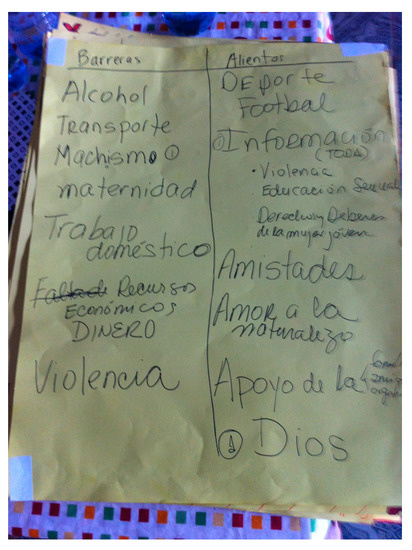 Barreras
Alcohol
Transporte
Machismo ①
maternidad
Trabajo
doméstico
Falta de Recursos
Económicos
DINERO
Violencia
Alientos
DEporte
Footbal
Información
(TODA)
• Violencia
Educación Sexual
Derechos y Deberes
de la mujer jóven
Amistades
Amor a la
naturaleza
Apoyo de la
① Dios